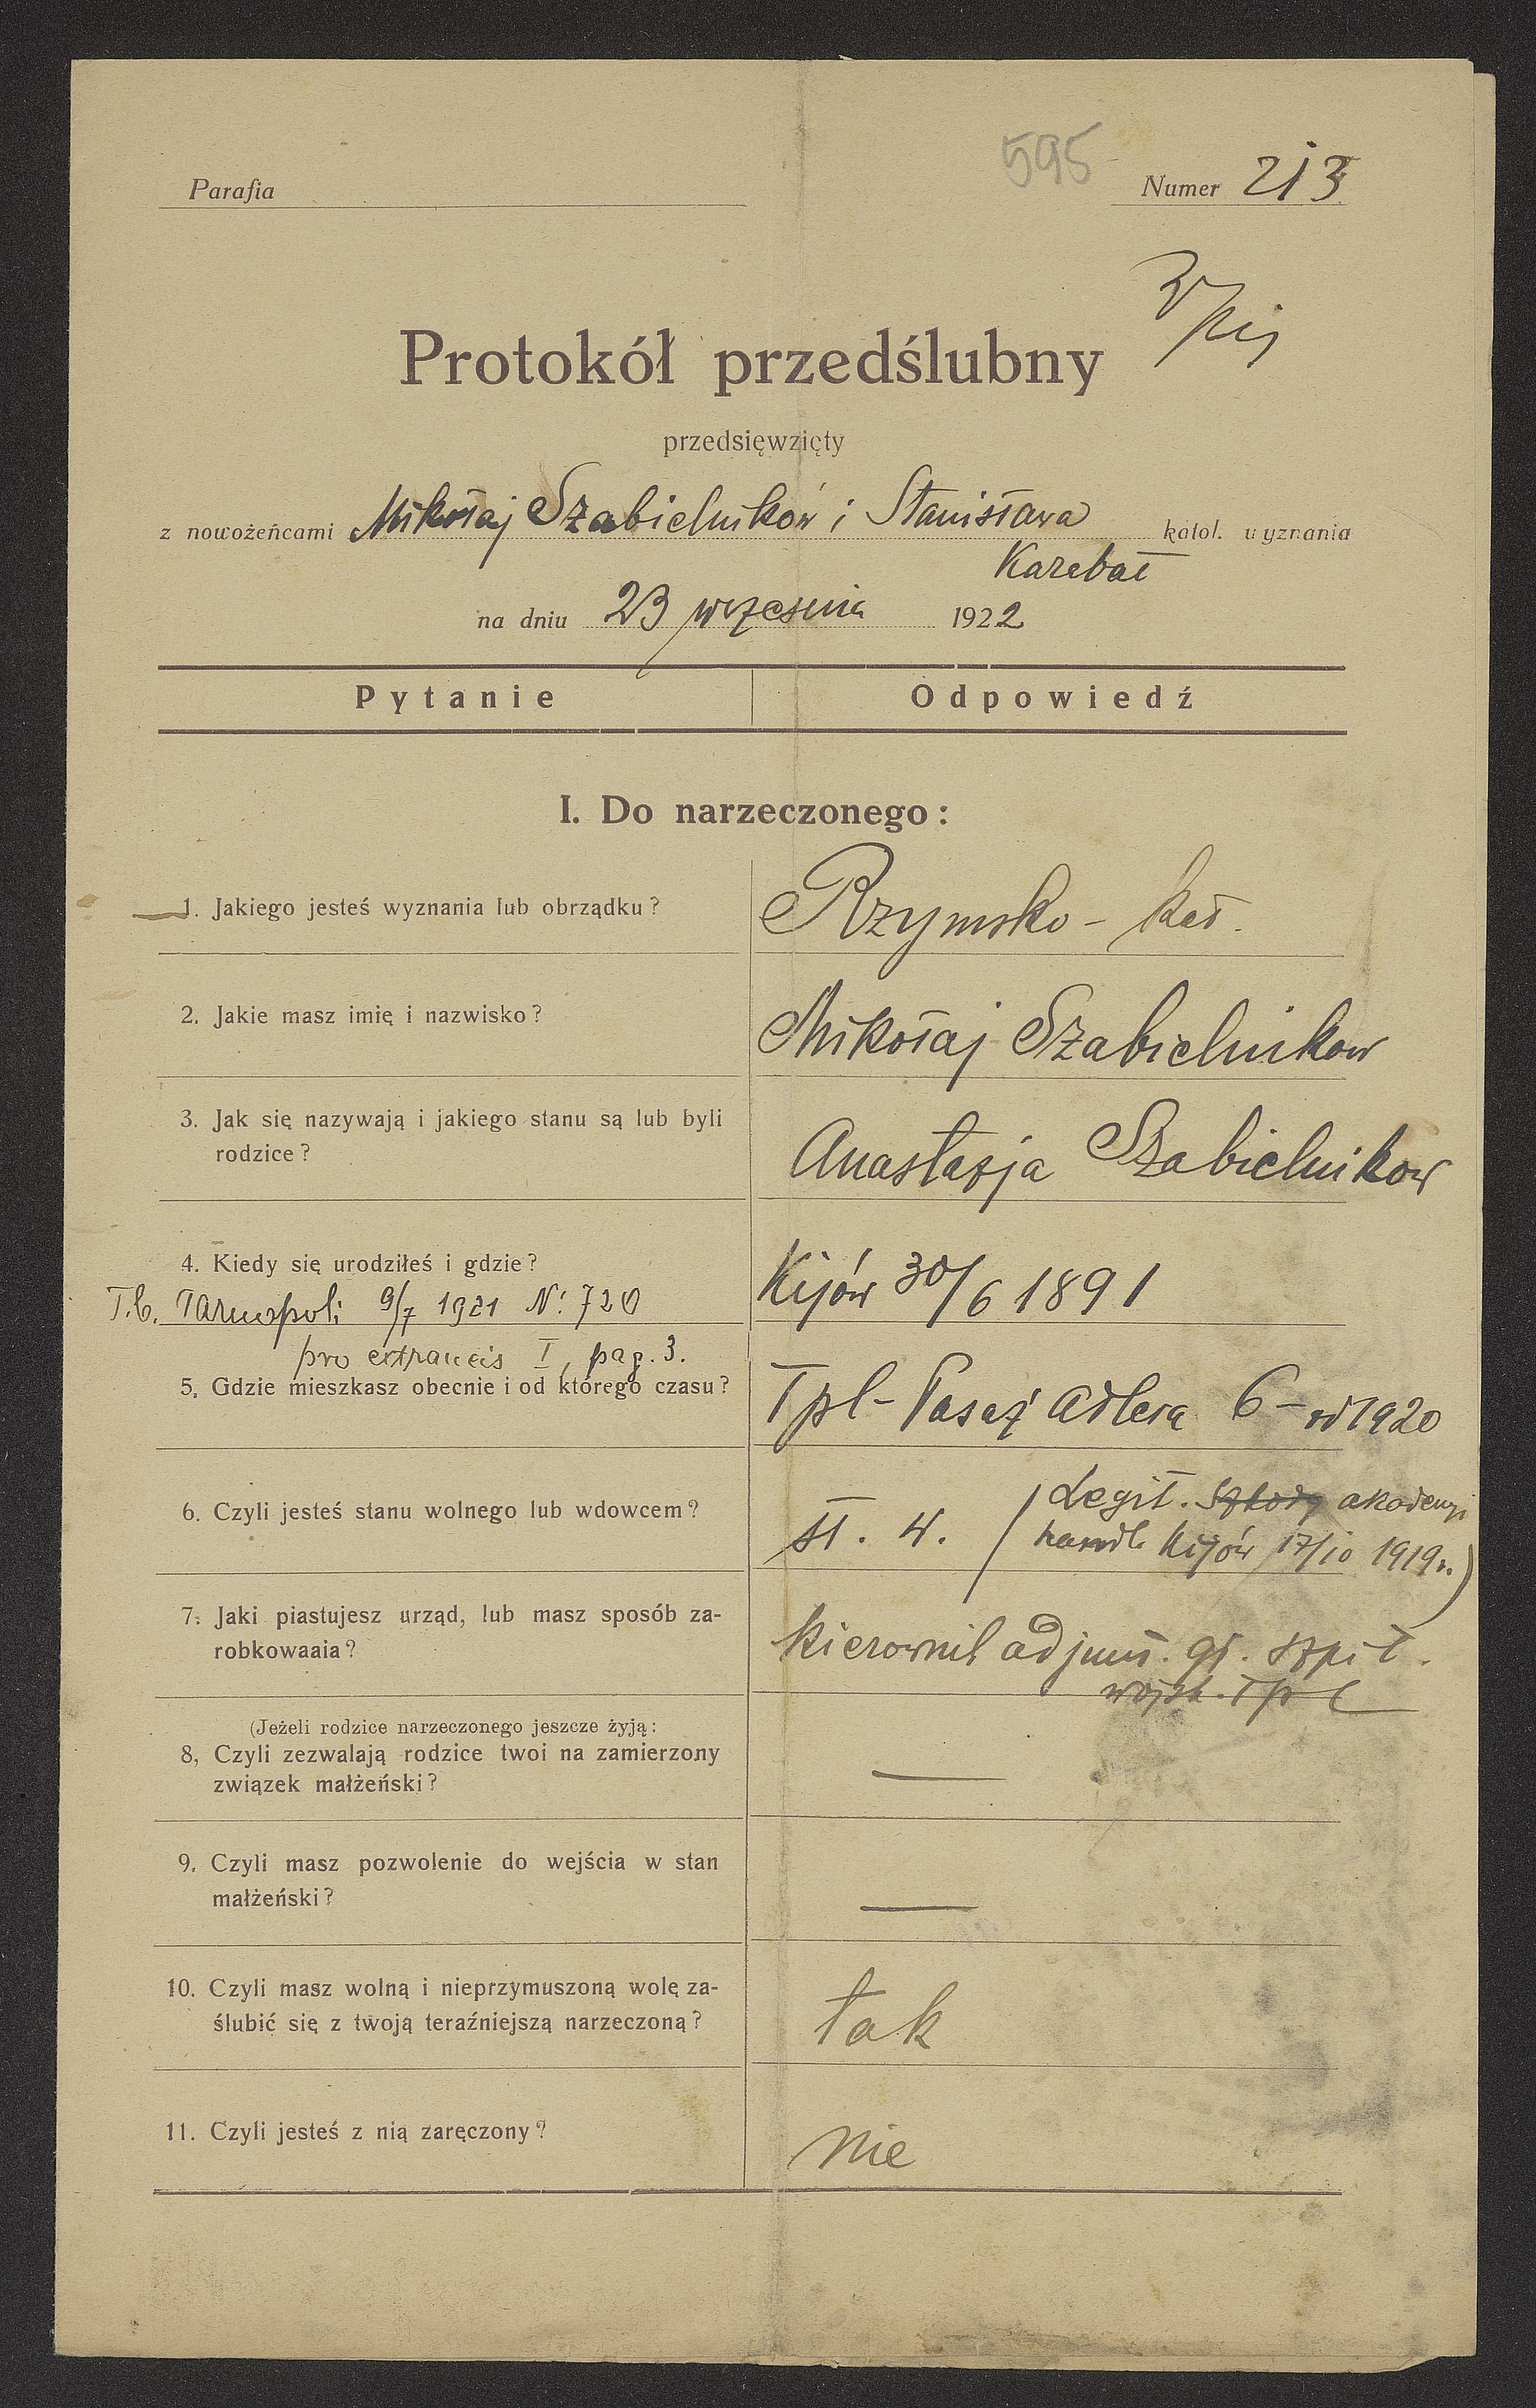 595
Parafia
Numer 213
Protokół przedślubny
przedsięwzięty
z nowożeńcami Mikołaj Szabielników i Stanisława katol. wyznania
Karebał
na dniu 23 września 1922
Pytanie Odpowiedź
I. Do narzeczonego:
1. Jakiego jesteś wyznania lub obrządku? Rzymsko-kat.
2. Jakie masz imię i nazwisko? Mikołaj Szabielnikow
3. Jak się nazywają i jakiego stanu są lub byli
rodzice? Anastazja Szabielnikow
4. Kiedy się urodziłeś i gdzie? Kijów 30/6 1891
T.b. Tarnopoli 9/7 1921 N: 720
pro extraneis I, pag. 3.
5. Gdzie mieszkasz obecnie i od którego czasu? Tpl - Pasaż Adlera 6 - od 1920
6. Czyli jesteś stanu wolnego lub wdowcem? st. w. (Legit. szkoły akademji
handl. Kijów 17/10 1919 r.)
7. Jaki piastujesz urząd, lub masz sposób za-
robkowaaia? kierownik adjunt. gł. szpit.
wojsk. Tpl
(Jeżeli rodzice narzeczonego jeszcze żyją:
8, Czyli zezwalają rodzice twoi na zamierzony
związek małżeński? —
9. Czyli masz pozwolenie do wejścia w stan
małżeński? —
10. Czyli masz wolną i nieprzymuszoną wolę za-
ślubić się z twoją teraźniejszą narzeczoną? tak
11. Czyli jesteś z nią zaręczony? nie